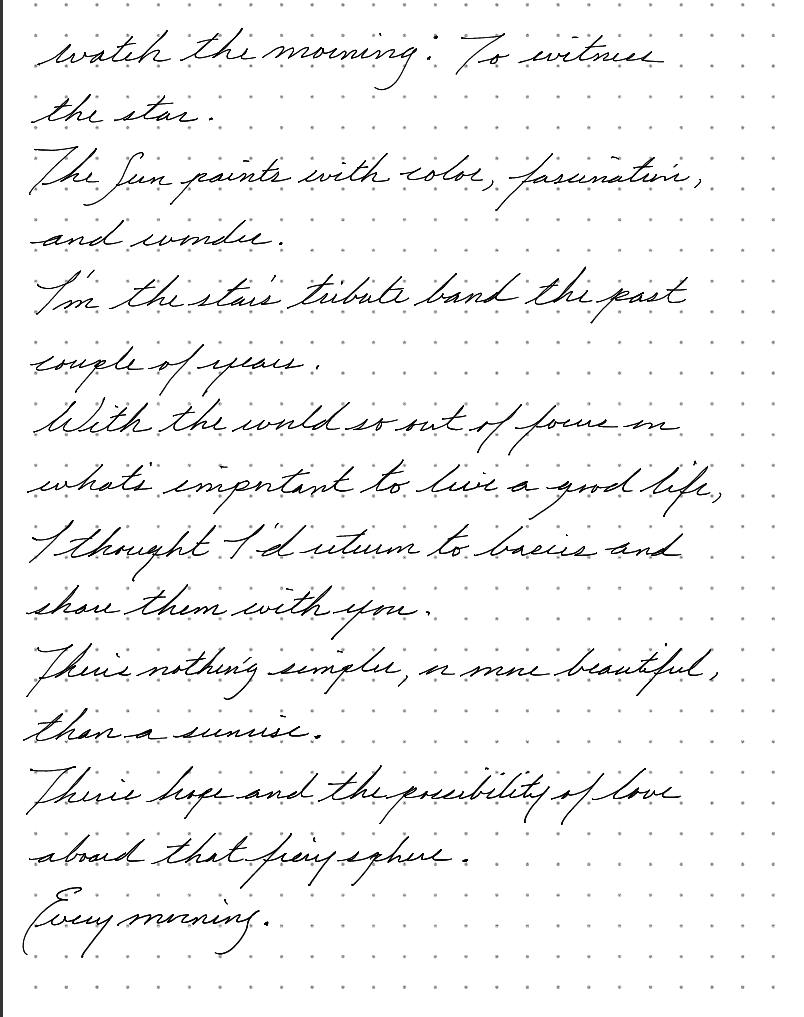 watch the morning: To witness
the star.
The Sun paints with color, fascination,
and wonder.
I'm the star's tribute band the past
couple of years.
With the world so out of focus on
what's important to live a good life,
I thought I'd return to basics and
share them with you.
There's nothing simpler, or more beautiful,
than a sunrise.
There's hope and the possibility of love
aboard that fiery sphere.
Every morning.